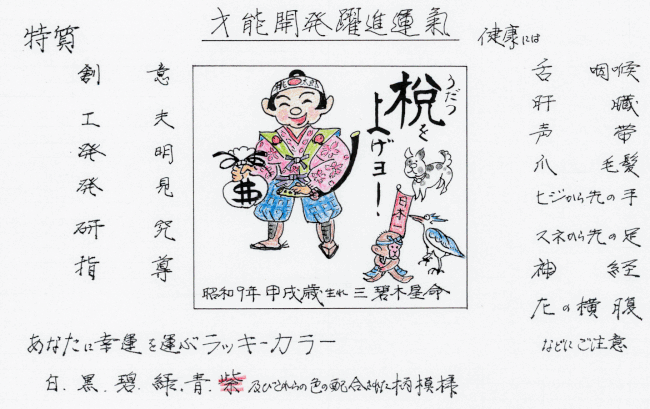 才能開発躍進運氣
特質
創意
工夫
発明
発見
研究
指導
桃太郎
うだつ
梲を
上げヨー!
日本一
昭和9年甲戌歳生れ三碧木星命
健康には
舌 咽喉
肝臓
声帯
爪 毛髪
ヒジから先の手
スネから先の足
神経
左の横腹
などにご注意
あなたに幸運を運ぶラッキーカラー
白.黒.碧.緑.青.紫及びこれらの色の配合された柄模様